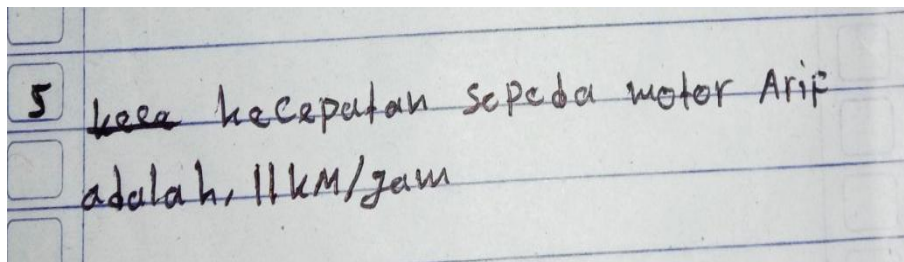 5 kece kecepatan sepeda motor Arif
adalah, 11 KM/jam